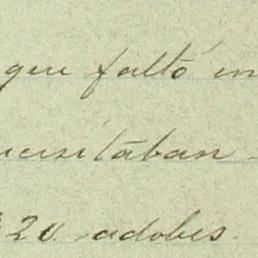 que faltó en
necesitaban
20 adobes